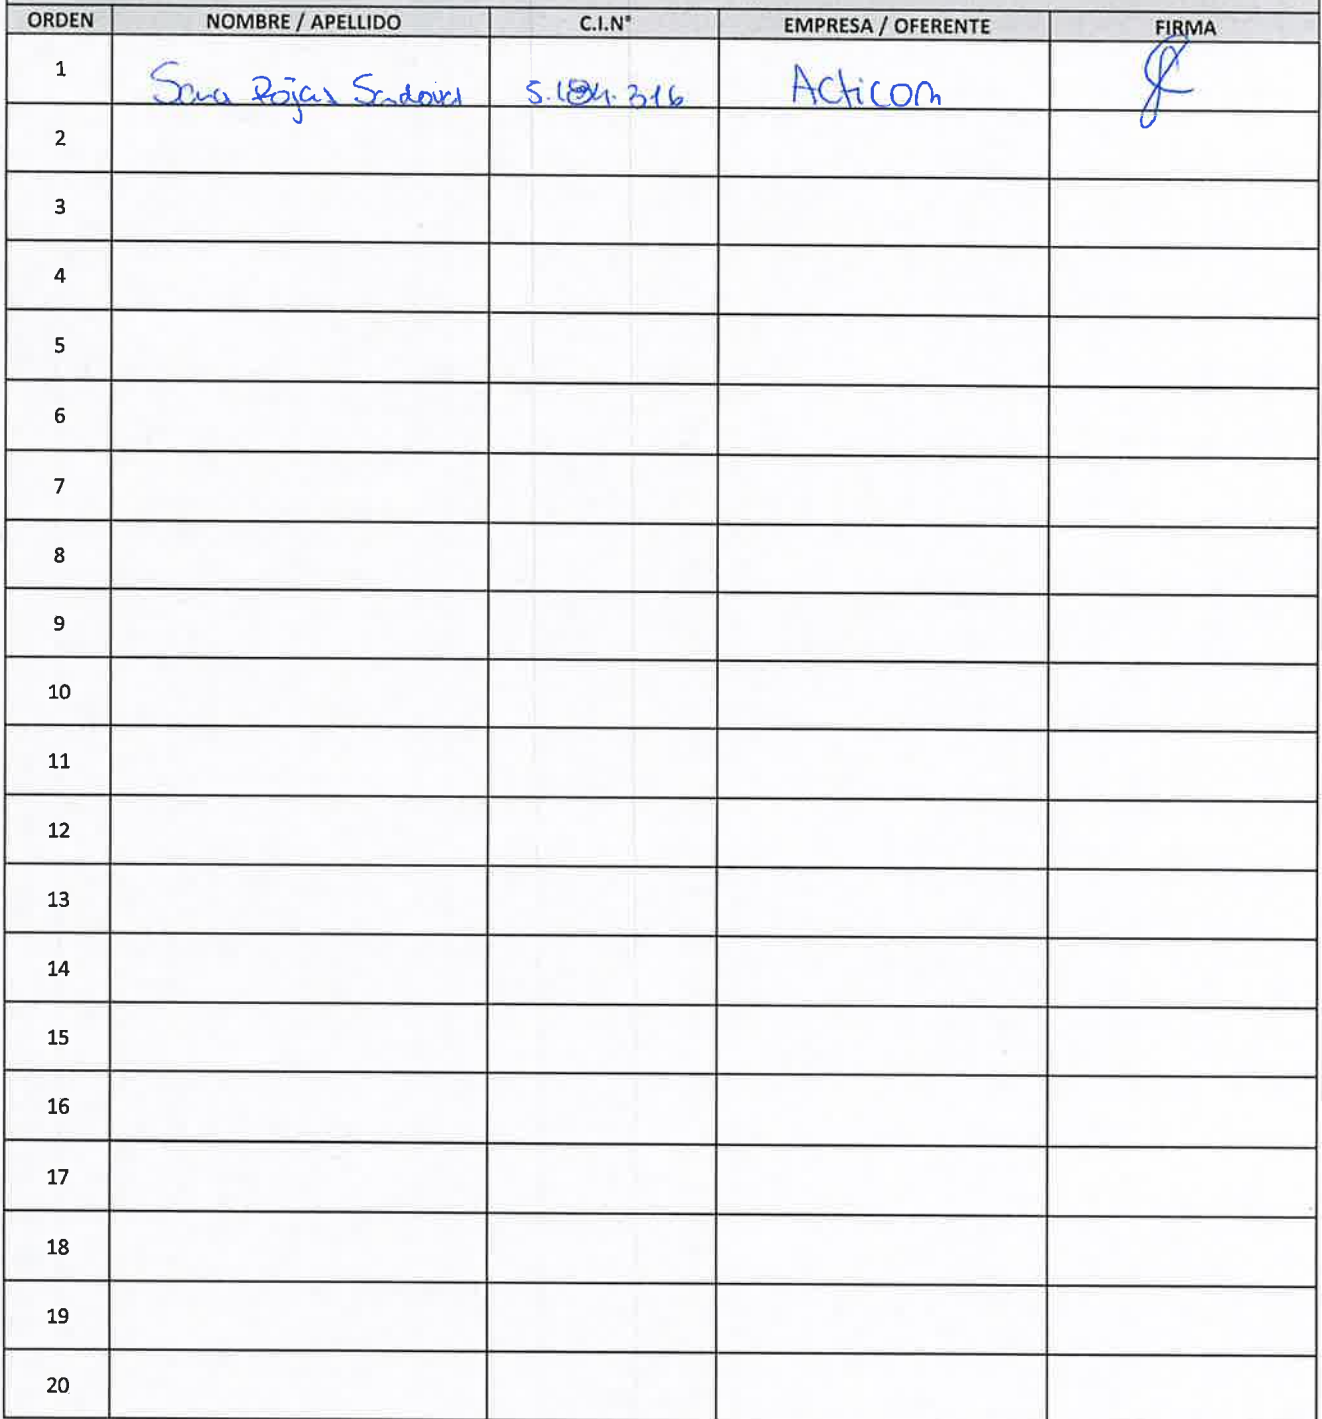 ORDEN NOMBRE / APELLIDO C.I.N° EMPRESA / OFERENTE FIRMA
1 Rojas Acticom
2
3
4
5
6
7
8
9
10
11
12
13
14
15
16
17
18
19
20